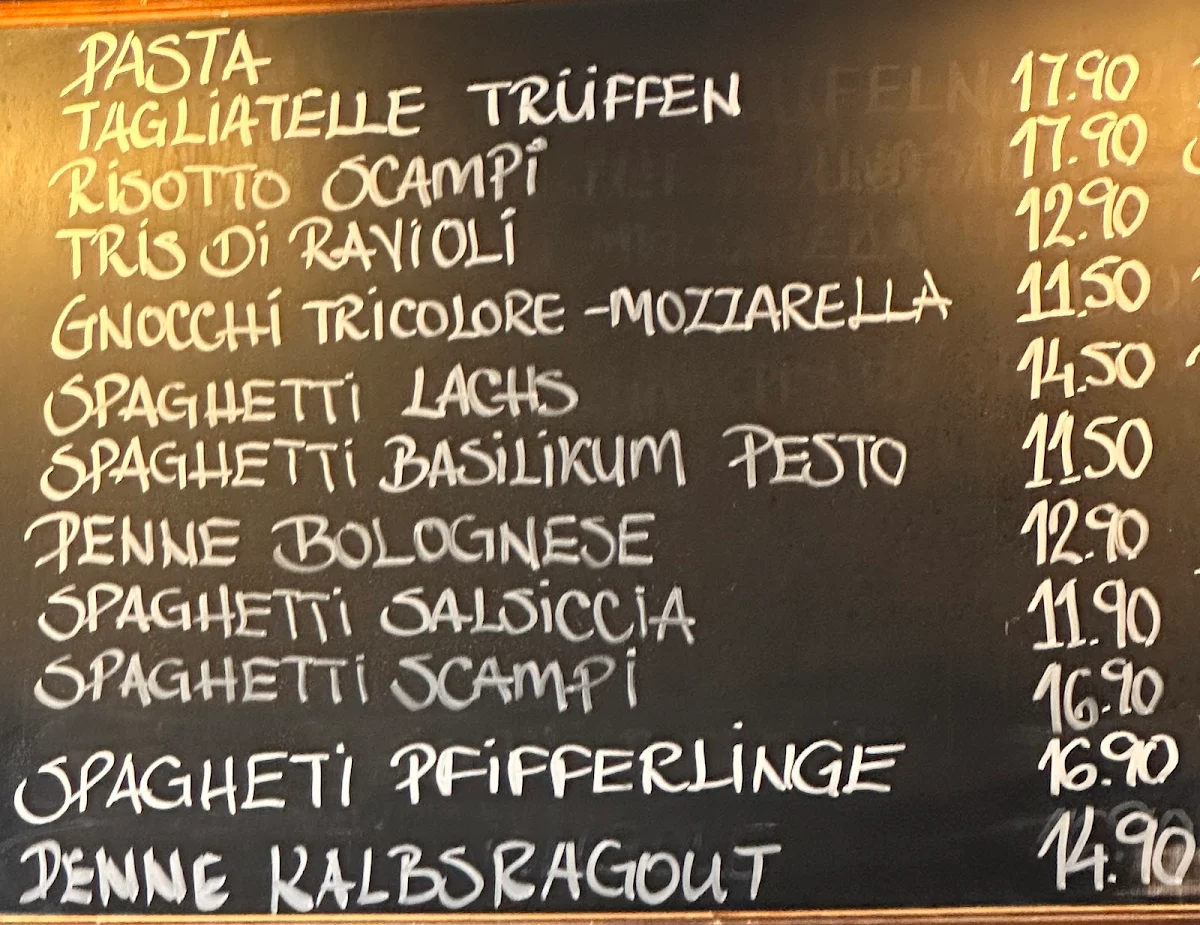 PASTA
TAGLIATELLE TRÜFFEN 17.90
RISOTTO SCAMPI 17.90
TRIS DI RAVIOLI 12.90
GNOCCHI TRICOLORE -MOZZARELLA 11.50
SPAGHETTI LACHS 14.50
SPAGHETTI BASILIKUM PESTO 11.50
PENNE BOLOGNESE 12.90
SPAGHETTI SALSICCIA 11.90
SPAGHETTI SCAMPI 16.90
SPAGHETI PFIFFERLINGE 16.90
PENNE KALBSRAGOUT 14.90